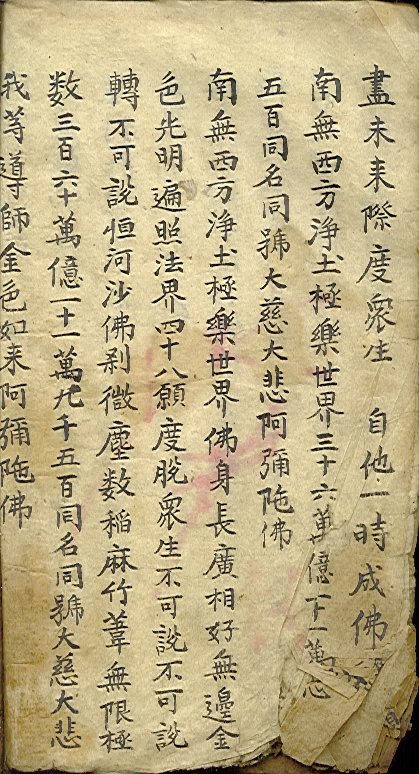 盡未来際度衆生 自他一時成佛
南無西方淨土極樂世界三十六萬億一十一萬
五百同名同號大慈大悲阿彌陁佛
南無西方淨土極樂世界佛身長廣相好無邉金
色光明遍照法界四十八願度脫衆生不可說不可說
轉不可說恒河沙佛刹微塵数稻麻竹葦無限極
数三百六十萬億一十一萬九千五百同名同號大慈大悲
我等導師金色如来阿彌陁佛